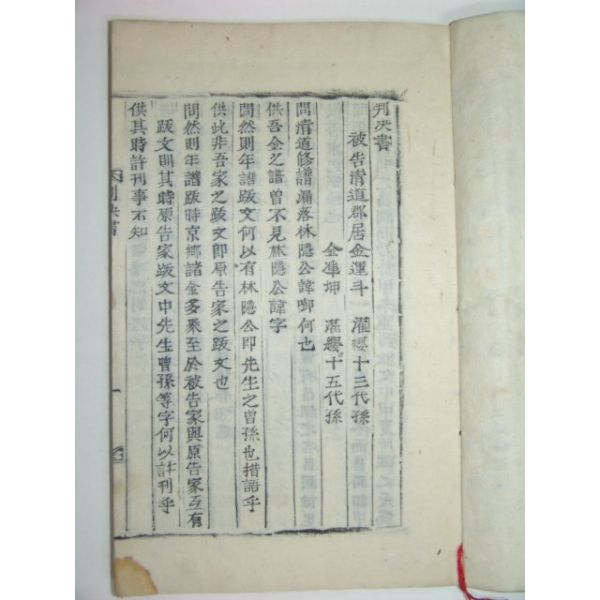 判决書
被告清道郡居金運斗 濯纓十三代孫
金 坤 濯纓十五代孫
問清道修譜漏落林隱公諱啣何也
供吾金之譜曾不見林隱公諱字
問然則年譜跋文何以有林隱公即先生之曾孫也措語乎
供此非吾家之跋文即原告家之跋文也
問然則年譜跋時京鄉諸金多乘至於被告家與原告家互有
跋文則其時原告家跋文中先生曾孫等字何以許刊乎
供其時許刊事不知
判决書
一